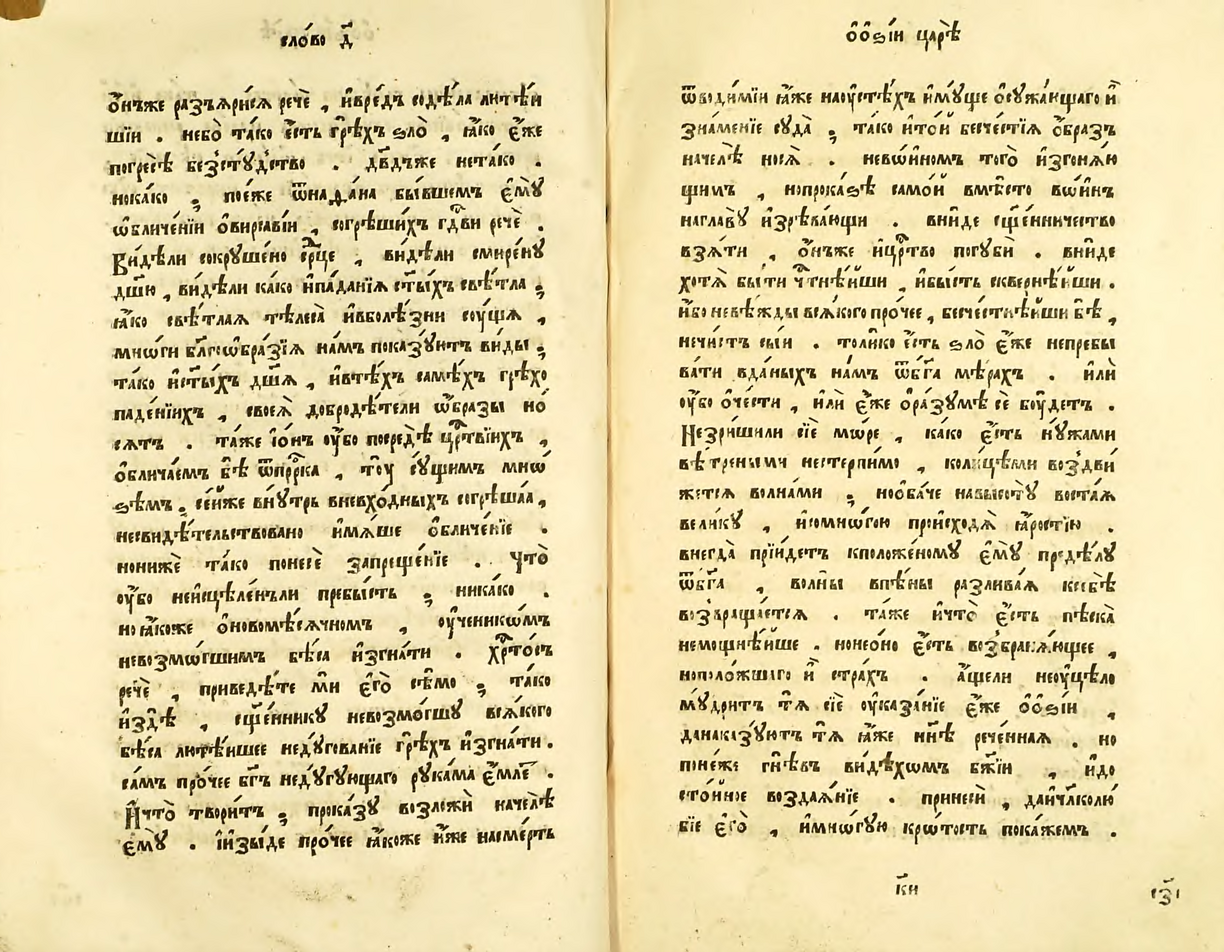 сло́во д҃
ѻ҆́нъже разъѧри́сѧ речѐ , и҆вре́дъ содѣ́ла лютѣ́и
шїи . небо̀ та́ко є҆́сть грѣ́хъ ѕло̀ , ꙗ҆́ко є҆́же
погресѣ̀ безстꙋ́дство . дв҃дъже нета́ко .
нока́ко ; поє́же ѿнаѳа́на бы́вшемъ є҆мꙋ̀
ѡ҆бличе́нїи ѻ҆вирса́вїи , согрѣши́хъ гдⷭ҇ви речѐ .
Ви́дѣли сокрꙋше́но срⷣце , ви́дѣли смире́нꙋ
дш҃ю , ви́дѣли ка́ко и҆па́данїѧ ст҃ы́хъ свѣ́тла ;
ꙗ҆́ко свѣ́тлаѧ тѣлеса̀ и҆вболѣ́зни сꙋ́щѧ ,
мнѡ́ги бл҃гоѡбра́зїѧ на́мъ показꙋ́итъ ви́ды ;
та́ко и҆ст҃ы́хъ дш҃ѧ , и҆втѣ́хъ самѣ́хъ грѣхо
паде́нїихъ , своеѧ̀ добродѣ́тели ѡ҆́бразы но́
сѧтъ . та́же і҆ѡ́нъ ѹ҆́бо посредѣ̀ црⷭ҇твїихъ ,
ѻ҆блича́емъ бѣ̀ ѿпрⷪ҇рка , тоу̀ сꙋ́щимъ мнѡ́
ѕѣмъ . се́йже внꙋ́трь вневхо́дныхъ согрѣша́ѧ ,
несвидѣ́тельствовано и҆мѧ́ше ѻ҆бличе́нїе .
нонижѐ та́ко понесѐ запреще́нїе . Что̀
ѹ҆́бо неи҆сцѣле́нъли пребы́сть ; ника́ко .
но ꙗ҆́коже ѻ҆новомѣ́сѧчномъ , ѹ҆ченикѡ́мъ
невозмѡ́гшимъ бѣ́са и҆згна́ти . Хрⷭ҇то́съ
речѐ , приведѣ́те мѝ є҆го̀ сѣ́мо ; та́ко
и҆здѣ̀ , сщ҃е́нникꙋ невозмо́гшꙋ всѧ́кого
бѣ́са лютѣ́ишее недꙋгова́нїе грѣ́хъ и҆згна́ти .
са́мъ про́чее бг҃ъ недꙋ́гꙋющаго рꙋка́ма є҆́млетъ .
И҆что̀ твори́тъ ; прока́зꙋ возложѝ начелѣ̀
є҆мꙋ̀ . і҆и҆зы́де про́чее ꙗ҆́коже и҆́же насме́рть
ѻ҆ѻ҆ѕі́и царѣ̀
ѿводи́мїи ꙗ҆́же наѹ҆стѣ́хъ и҆мꙋ́ще ѻ҆сꙋжа́ющаго и҆̀
зна́менїе сꙋда̀ ; та́ко и҆то́й бесче́стїѧ ѻ҆́бразъ
начелѣ̀ носѧ̀ . невѡ́иномъ того̀ и҆згонѧ́ю
щимъ , нопрока́ѕѣ само́й вмѣ́сто вѡ́инъ
наглавꙋ̀ и҆зрѣва́ющи . вни́де сщ҃е́нничество
взѧ́ти , ѻ҆́нъже и҆црⷭ҇тво погꙋбѝ . вни́де
хотѧ̀ бы́ти чтⷭ҇нѣ́йши , и҆бы́сть скверне́йши .
и҆́бо невѣ́жды всѧ́кого про́чее , бесче́стнѣйши бѣ̀ ,
нечи́стъ сы́и . толи́ко є҆́сть ѕло̀ є҆́же непребы
ва́ти вда́ныхъ на́мъ ѿбг҃а мѣ́рахъ . и҆лѝ
ѹ҆́бо ѻ҆че́сти , и҆лѝ є҆́же ѻ҆ра́зꙋмѣ сѐ бꙋ́детъ .
Незри́шили сїѐ мѡ́ре , ка́ко є҆́сть нꙋ́жами
вѣ́треными нестерпи́мо , коли́цѣми воздви́
жетсѧ волна́ми ; нооба́че навысотꙋ̀ воста́ѧ
вели́кꙋ , и҆сомнѡ́гою происходѧ̀ ꙗ҆́ростїю .
внегда̀ прїи́детъ кположе́номꙋ є҆мꙋ̀ предѣ́лꙋ
ѿбг҃а , во́лны впѣ́ны разлива́ѧ ксебѣ̀
возвраща́етсѧ . та́же и҆что̀ є҆́сть пѣска̀
немощнѣ́йше . нонео́но є҆́сть возбранѧ́ющее ,
ноположшаго и҆̀ стра́хъ . а҆́щели неѹ҆цѣло
мꙋ́дритъ тѧ̀ сїѐ ѹ҆каза́нїе є҆́же ѻ҆ѻ҆ѕі́и ,
данака́зꙋютъ тѧ̀ ꙗ҆́же нн҃ѣ рече́ннаѧ . но
поне́же гнѣ́въ ви́дѣхомъ бж҃їи , и҆до
сто́йное воздаѧ́нїе . принеси̇̀ , дайчл҃колю́
бїе є҆го̀ , и҆мнѡ́гꙋю кро́тость пока́жемъ .
к҃и
з҃і